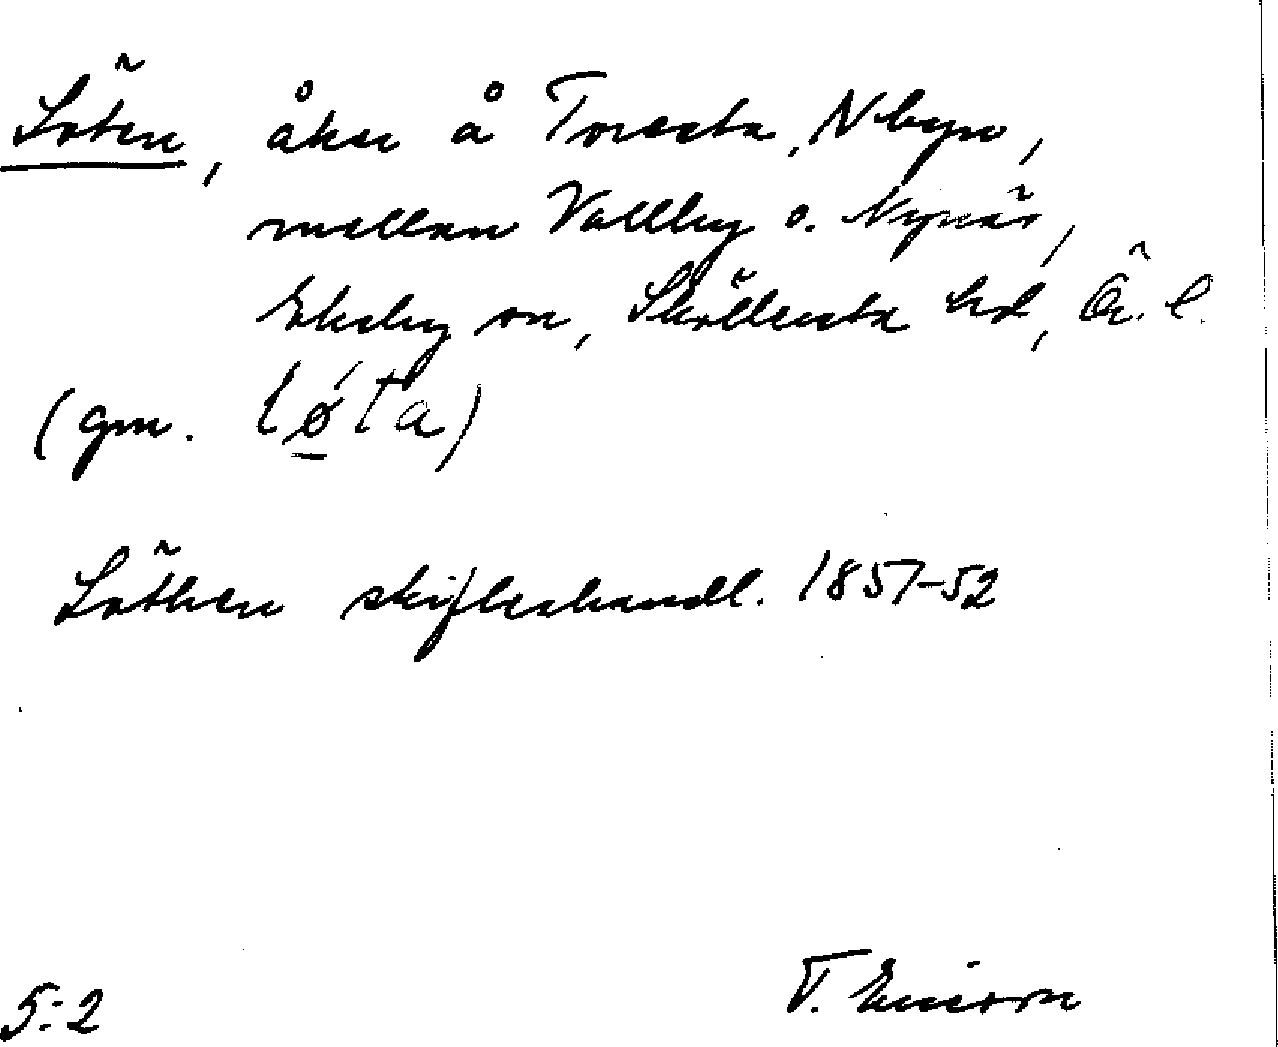 Löten, åker å Toresta, N byn,
mellan Vallby o. Nynäs,
Ekeby sn, Sköllersta hd, Ö. l.
(gm. lǿta)
Löthen skifteshandl. 1851-52
5:2 T. Ericson